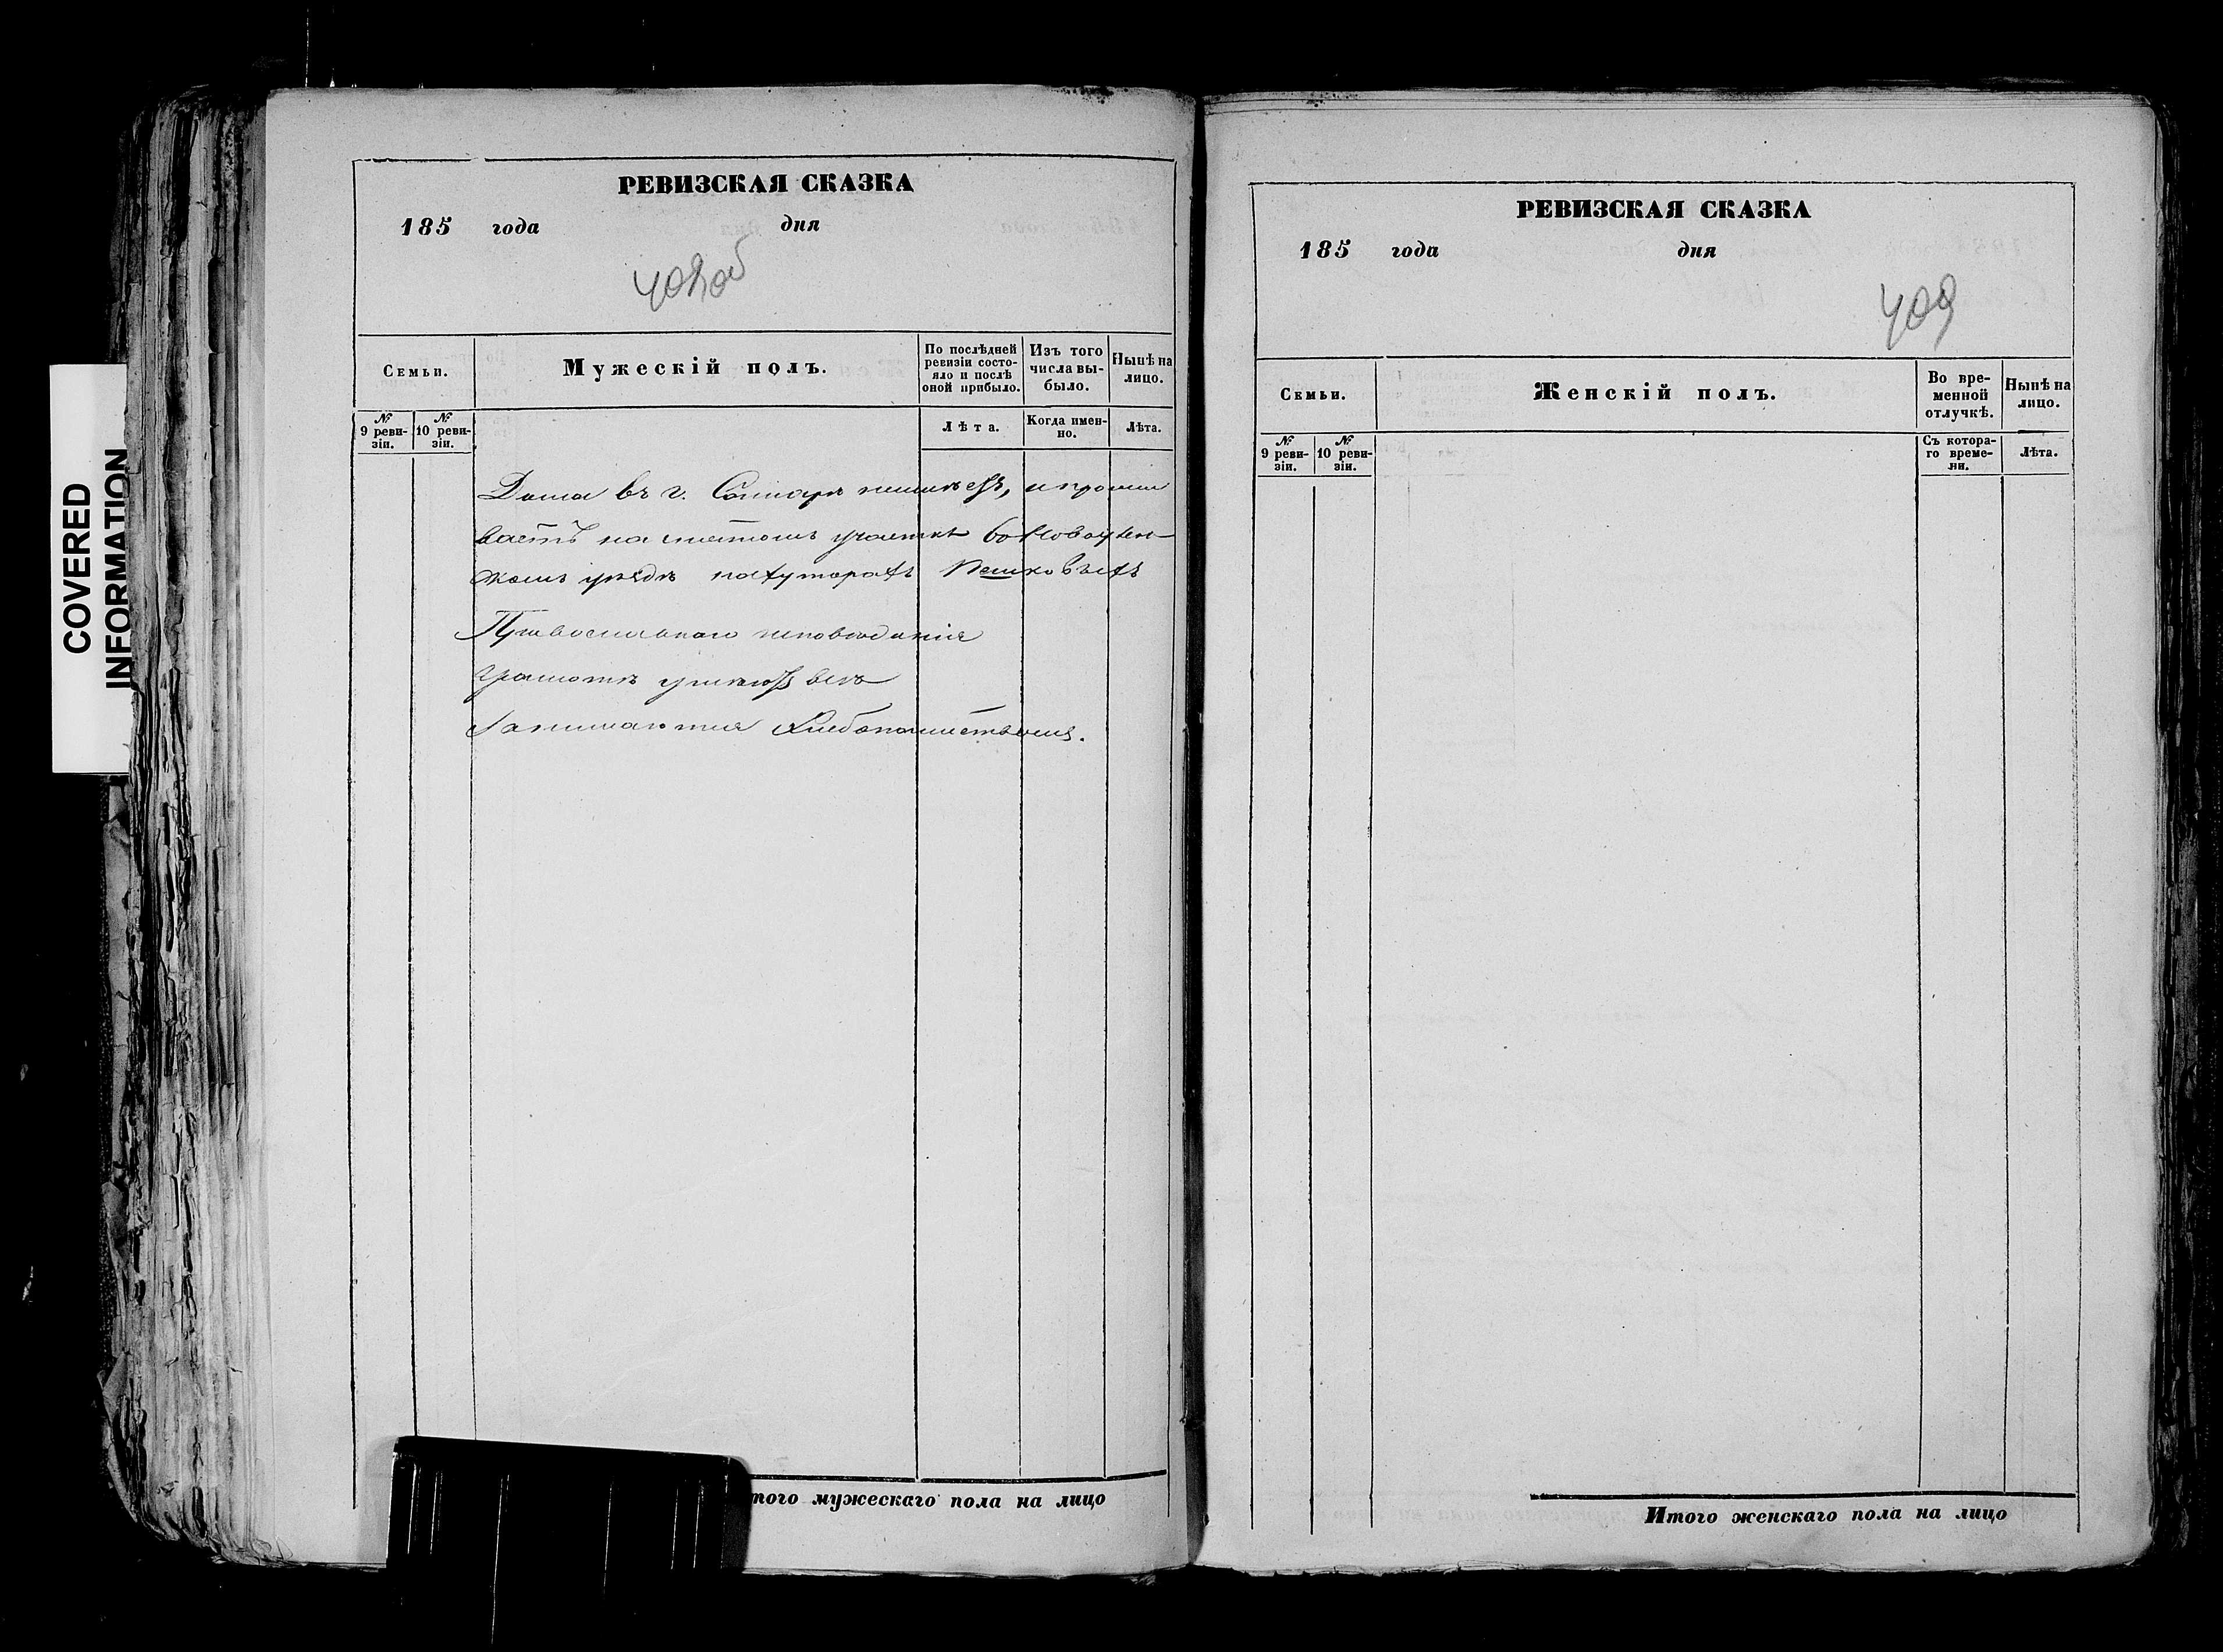 COVERED
INFORMATION
РЕВИЗСКАЯ СКАЗКА
185 года дня
408об
Семьи.
Мужескій полъ.
По послѣдней ревизіи состо-
яло и послѣ оной прибыло.
Изъ того числа вы-
было.
Нынѣ на лицо.
№ 9 реви-
зіи.
№ 10 реви-
зіи.
Лѣта.
Когда имен-
но.
Лѣта.
Дома въ г. Самарѣ неимѣетъ, и прожи
ваетъ на снятомъ участкѣ во Новоузен-
скомъ уѣздѣ на хуторахъ
Православнаго исповѣданія
Грамотѣ умѣютъ всѣ
Занимаются хлебопашествомъ.
того мужескаго пола на лицо
РЕВИЗСКАЯ СКАЗКА
185 года дня
409
Семьи.
Женскій полъ.
Во вре-
менной
отлучкѣ.
Нынѣ на
лицо.
№ 9 реви-
зіи.
№ 10 реви-
зіи.
Съ котора-
го време-
ни.
Лѣта.
Итого женскаго пола на лицо